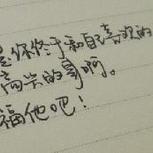 是你终于和自己喜欢的
高兴的事啊。
福他吧！